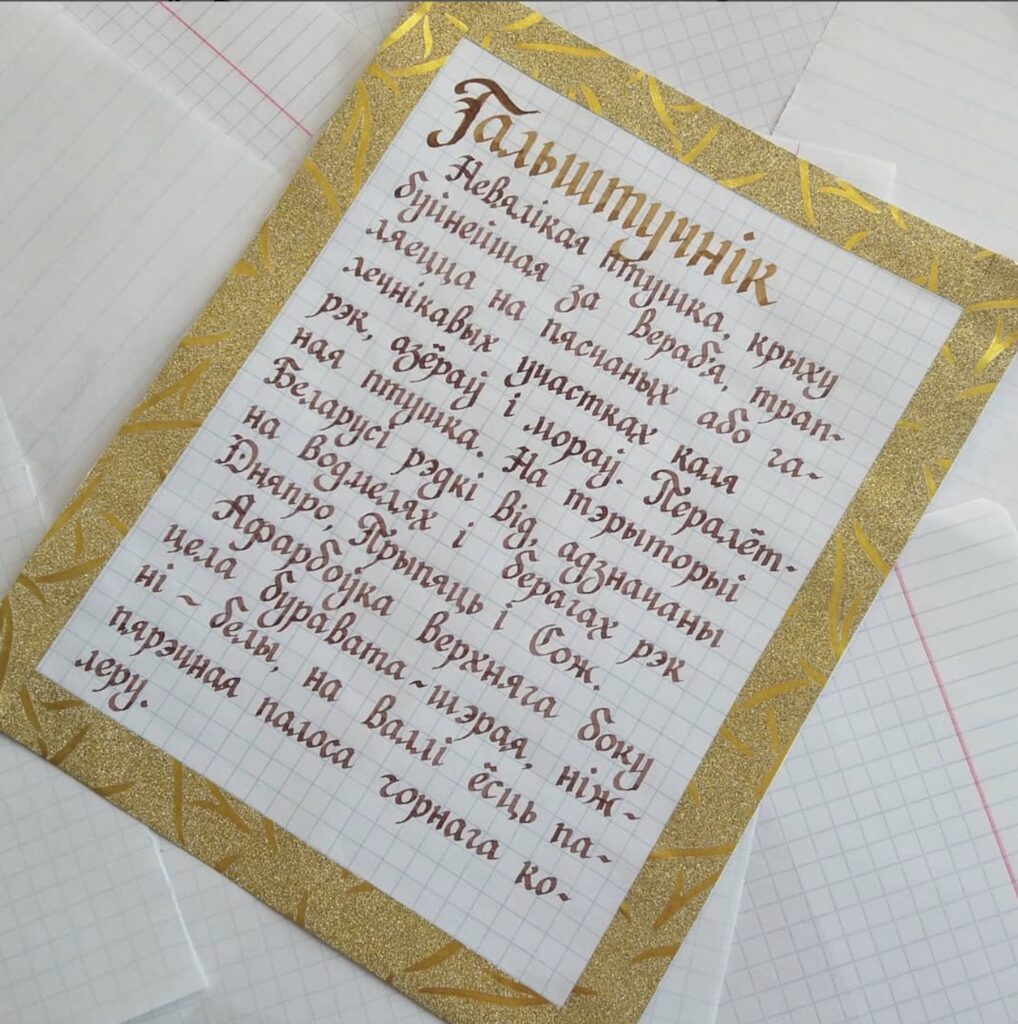 Гальштучнік
Невялікая птушка, крыху
буйнейшая за вераб'я, трап-
ляецца на пясчаных або га-
лечнікавых участках каля
рэк, азёраў і мораў. Пералёт-
ная птушка. На тэрыторыі
Беларусі рэдкі від, адзначаны
на водмелях і берагах рэк
Дняпро, Прыпяць і Сож.
Афарбоўка верхняга боку
цела буравата-шэрая, ніж-
ні - белы, на валлі ёсць па-
пярэчная палоса чорнага ко-
леру.